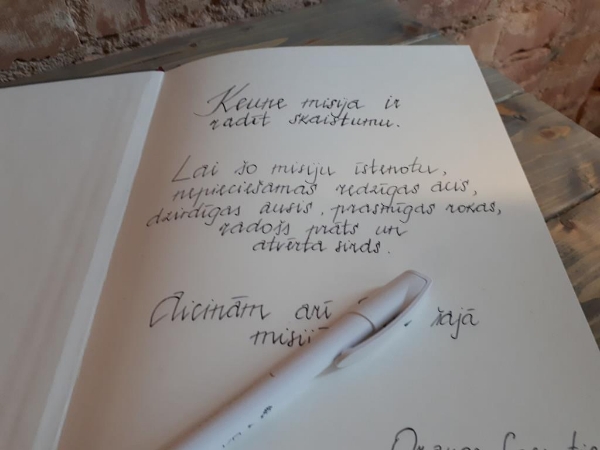 Keune misija ir
radīt skaistumu.
Lai šo misiju īstenotu,
nepieciešamas redzīgas acis,
dzirdīgas ausis, prasmīgas rokas,
radošs prāts un
atvērta sirds.
Aicinām arī šajā